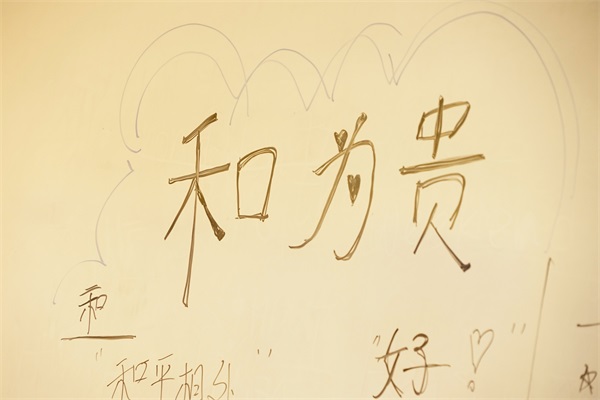 和为贵
和
"和平相处"
"好！"
一